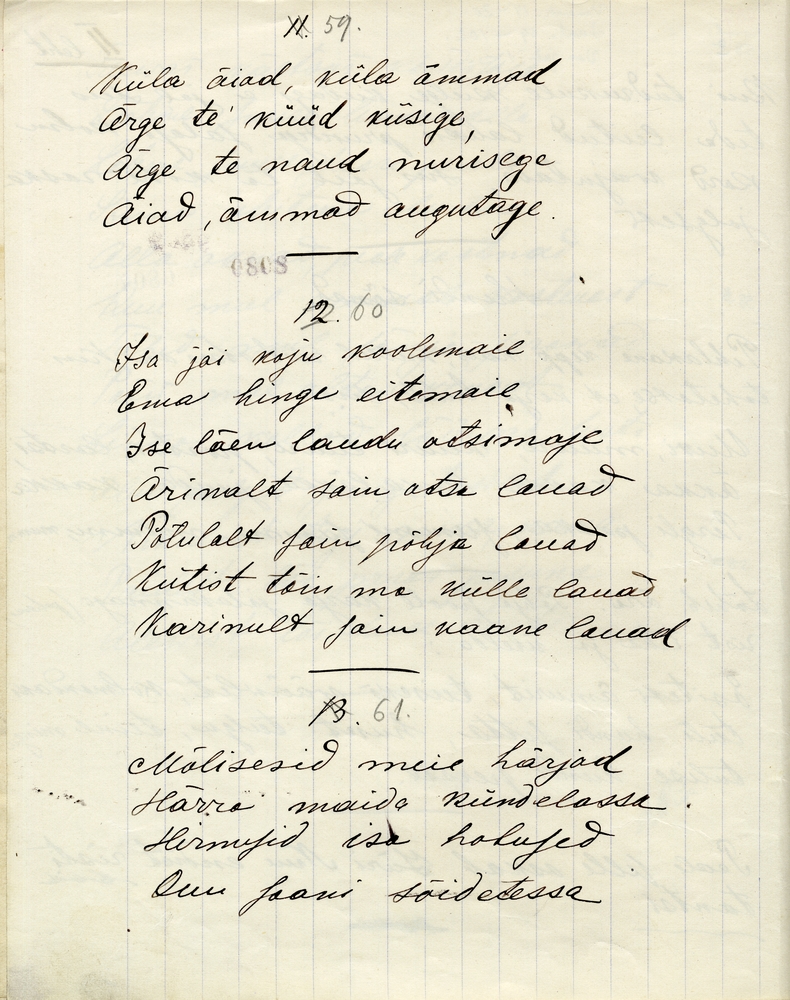 11. 59.
Küla äiad, küla ämmad
Ärge te küüd küsige,
Ärge te naud nurisege
Äiad, ämmad augutage.
0808
12. 60
Isa jäi koju koolemaie
Ema hinge eitemaie
Ise läen laudu otsimaje
Ärinalt sain otsa lauad
Potulalt sain põhja lauad
Kütist tõin ma külle lauad
Karinult sain kaane lauad
13. 61.
Mölisesid meie härjad
Härra maida kündelassa
Hirnusid isa hobused
Õuu saani sõidetessa